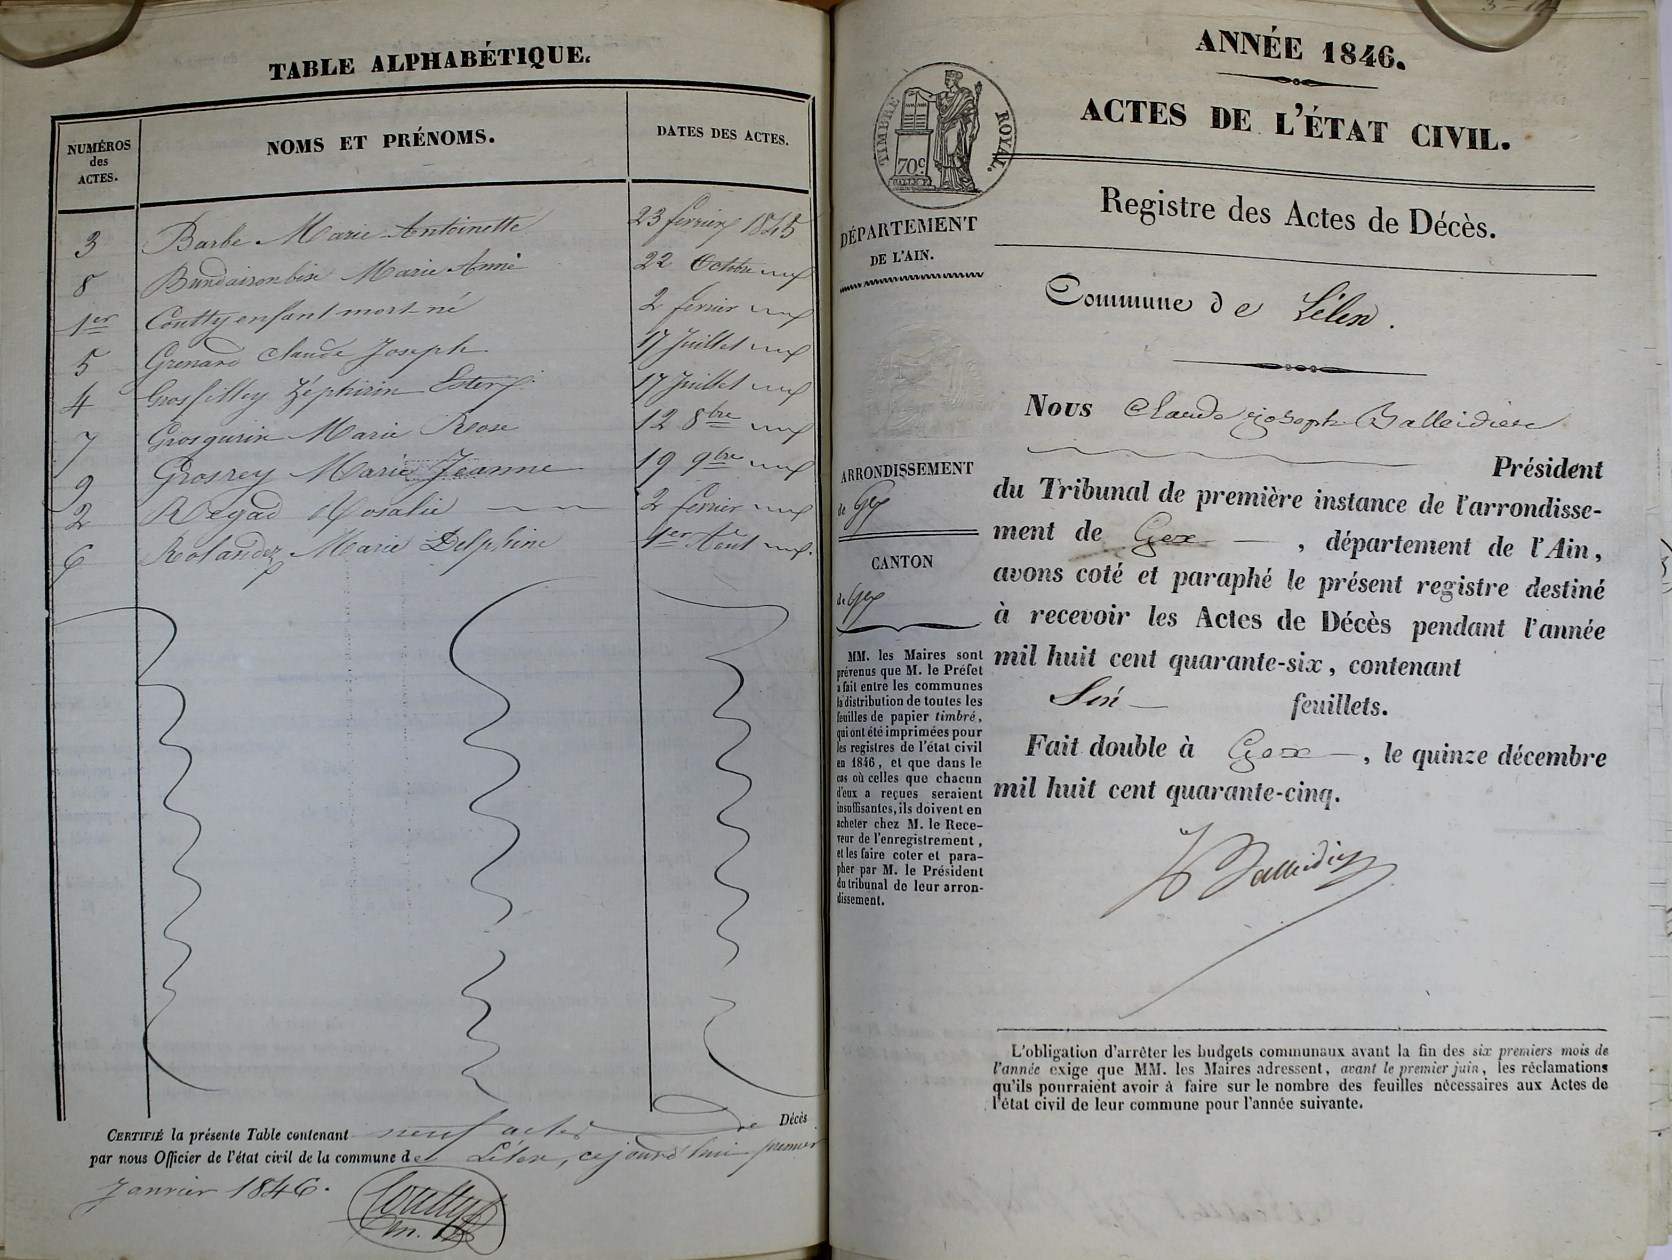 TABLE ALPHABÉTIQUE.
NUMÉROS des ACTES. NOMS ET PRÉNOMS. DATES DES ACTES.
3 Barbe Marie Antoinette 23 fevrier 1845
8 Marie Anne 22 Octobre
1er Coutty enfant mort-né 2 fevrier
5 Grenard Claude Joseph 17 Juillet
4 Grosfilley Zéphirin 17 Juillet
7 Grosgurin Marie Rose 12 8bre
9 Grosrey Marie Jeanne 19 9bre
2 Regad Rosalie 2 fevrier
6 Rolandez Marie Delphine 1er Aout
CERTIFIÉ la présente Table contenant neuf actes de Décès
par nous Officier de l'état civil de la commune de Lélex, cejourd'hui premier
Janvier 1846.
Coutty
ANNÉE 1846.
ACTES DE L'ÉTAT CIVIL.
TIMBRE ROYAL.
70c
DÉPARTEMENT
DE L'AIN.
Registre des Actes de Décès.
Commune de Lélex.
ARRONDISSEMENT
de Gex
CANTON
de Gex
MM. les Maires sont
prévenus que M. le Préfet
a fait entre les communes
la distribution de toutes les
feuilles de papier timbré,
qui ont été imprimées pour
les registres de l'état civil
en 1846, et que dans le
cas où celles que chacun
d'eux a reçues seraient
insuffisantes, ils doivent en
acheter chez M. le Rece-
veur de l'enregistrement,
et les faire coter et para-
pher par M. le Président
du tribunal de leur arron-
dissement.
Nous Claude Joseph Balleidier
Président
du Tribunal de première instance de l'arrondisse-
ment de Gex, département de l'Ain,
avons coté et paraphé le présent registre destiné
à recevoir les Actes de Décès pendant l'année
mil huit cent quarante-six, contenant
feuillets.
Fait double à Gex, le quinze décembre
mil huit cent quarante-cinq.
Balleidier
L'obligation d'arrêter les budgets communaux avant la fin des six premiers mois de
l'année exige que MM. les Maires adressent, avant le premier juin, les réclamations
qu'ils pourraient avoir à faire sur le nombre des feuilles nécessaires aux Actes de
l'état civil de leur commune pour l'année suivante.